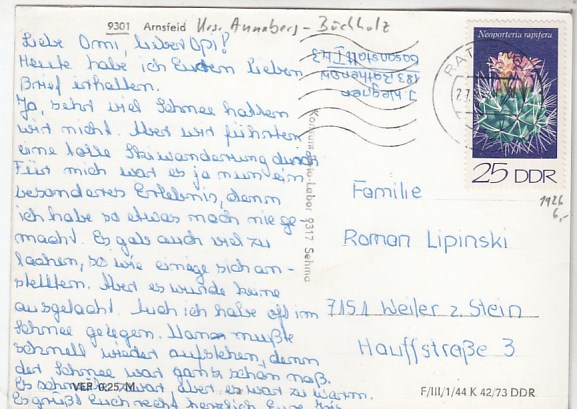 9301 Arnsfeld Krs. Annaberg-Buchholz
Liebe Omi, lieber Opi!
Heute habe ich Euern lieben
Brief erhalten.
Ja, sehr viel Schnee hatten
wir nicht. Aber wir führten
eine tolle Skiwanderung durch
Für mich war es ja nun ein
besonderes Erlebnis, denn
ich habe so etwas noch nie ge
macht. Es gab auch viel zu
lachen, so wie einige sich an-
stellten. Aber es wurde keine
ausgelacht. Auch ich habe oft im
Schnee gelegen. Dann mußte
schnell wieder aufstehen, denn
der Schnee war ganz schön naß.
Es schneite zwar, aber es war zu warm.
Es grüßt Euch recht herzlich Eure
VEB 0,25/M
Neoporteria rapifera
25 DDR
1926
6,-
J. Wegner
183 Rathenow
Kommunal-Labor, 9317 Sehma
Familie
Roman Lipinski
7151 Weiler z. Stein
Hauffstraße 3
F/III/1/44 K 42/73 DDR